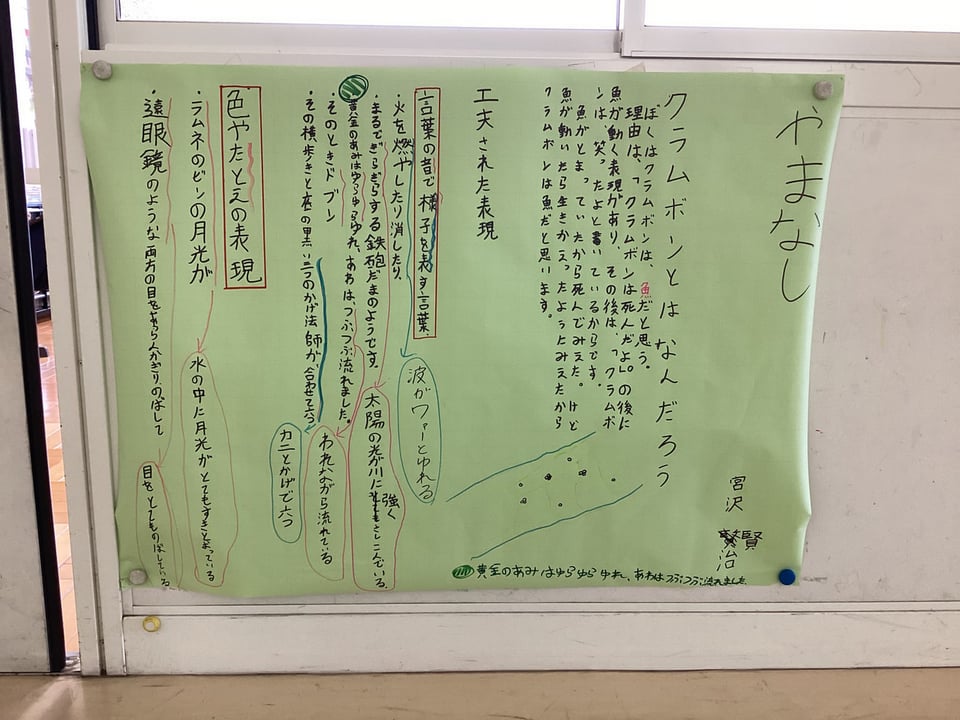 やまなし
宮沢 賢治
クラムボンとはなんだろう
ぼくはクラムボンは、魚だと思う。
理由は、「クラムボンは死んだよ。」の後に
魚が動く表現があり、その後は、「クラムボ
ンは、笑ったよと書いているからです。
魚がとまっていたから死んでみえた。けど
魚が動いたら生きかえったようにみえたから
クラムボンは魚だと思います。
工夫された表現
言葉の音で様子を表す言葉
・火を燃やしたり消したり、
波がワァーとゆれる
・まるでぎらぎらする鉄砲だまのようです。
太陽の光が川に強くさしこんでいる。
黄金のあみはゆらゆらゆれ、あわは、つぶつぶ流れました。
われながら流れている
・そのときドブン
・その横歩きと底の黒い三つのかげ法師が合わせて六つ
カニとかげで六つ
色やたとえの表現
・ラムネのビンの月光が
水の中に月光がとてもすきとおっている
・遠眼鏡のような両方の目をあらんかぎりのばして
目をとてものばしている
黄金のあみはゆらゆらゆれ、あわはつぶつぶ流れました